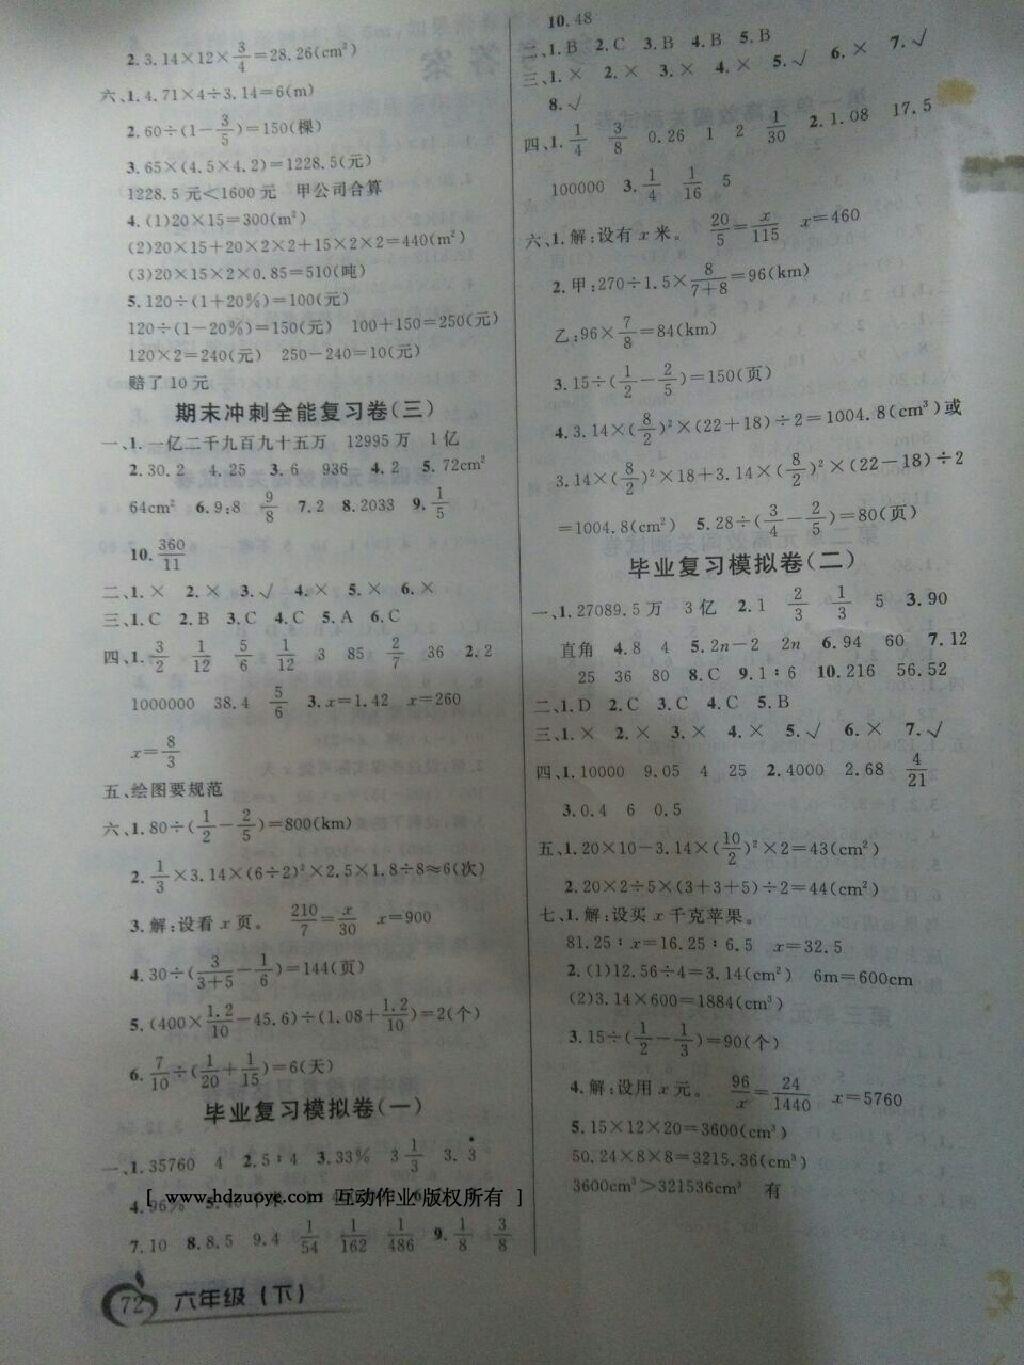 2.3.14×12×3/4=28.26(cm²)
六、1.4.71×4÷3.14=6(m)
2.60÷(1−3/5)=150(棵)
3.65×(4.5×4.2)=1228.5(元)
1228.5元<1600元 甲公司合算
4.(1)20×15=300(m²)
(2)20×15+20×2×2+15×2×2=440(m²)
(3)20×15×2×0.85=510(吨)
5.120÷(1+20%)=100(元)
120÷(1−20%)=150(元) 100+150=250(元)
120×2=240(元) 250−240=10(元)
赔了10元
期末冲刺全能复习卷(三)
一、1.一亿二千九百九十五万 12995万 1亿
2.30.2 4.25 3.6 936 4.2 5.72cm²
64cm² 6.9:8 9/8 7.2 8.2033 9.1/5
10.360/11
二、1.× 2.× 3.√ 4.× 5.× 6.×
三、1.C 2.B 3.C 4.C 5.A 6.C
四、1.3/2 1/12 5/6 1/12 3 85 2/7 36 2.2
1000000 38.4 5/6 3.x=1.42 x=260
x=8/3
五、绘图要规范
六、1.80÷(1/2−2/5)=800(km)
2.1/3×3.14×(6÷2)²×2.5×1.8÷8≈6(次)
3.解:设看x页。 210/7=x/30 x=900
4.30÷(3/3+5−1/6)=144(页)
5.(400×1.2/10−45.6)÷(1.08+1.2/10)=2(个)
6.7/10÷(1/20+1/15)=6(天)
毕业复习模拟卷(一)
一、1.35760 4 2.5∶4 3.33% 3 1/3 3.3̇
4.96%
[ www.hdzuoye.com 互动作业 版权所有 ]
7.10 8.8.5 9.4 1/54 1/162 1/486 9.1/8 3/8
72 六年级(下)
10.48
二、1.B 2.C 3.B 4.B 5.B
三、1.× 2.× 3.× 4.× 5.√ 6.× 7.√
8.√
四、1.1/4 3/8 0.26 1 2 1/30 2.1.08 17.5
100000 3.1/4 1/16 5
六、1.解:设有x米。 20/5=x/115 x=460
2.甲:270÷1.5×8/7+8=96(km)
乙:96×7/8=84(km)
3.15÷(1/2−2/5)=150(页)
4.3.14×(8/2)²×(22+18)÷2=1004.8(cm³)或
3.14×(8/2)²×18+3.14×(8/2)²×(22−18)÷2
=1004.8(cm²) 5.28÷(3/4−2/5)=80(页)
毕业复习模拟卷(二)
一、1.27089.5万 3亿 2.1 2/3 1/3 5 3.90
直角 4.8 4 5.2n−2 2n 6.94 60 7.12
25 36 80 8.C 9.1∶6 10.216 56.52
二、1.D 2.C 3.C 4.C 5.B
三、1.× 2.× 3.× 4.× 5.√ 6.× 7.√
四、1.10000 9.05 4 25 2.4000 2.68 4/21
3.0.4 6 0.5
五、1.20×10−3.14×(10/2)²×2=43(cm²)
2.20×2÷5×(3+3+5)÷2=44(cm²)
七、1.解:设买x千克苹果。
81.25∶x=16.25∶6.5 x=32.5
2.(1)12.56÷4=3.14(cm²) 6m=600cm
(2)3.14×600=1884(cm³)
3.15÷(1/2−1/3)=90(个)
4.解:设用x元。 96/x=24/1440 x=5760
5.15×12×20=3600(cm³)
50.24×8×8=3215.36(cm³)
3600cm³>321536cm³ 有